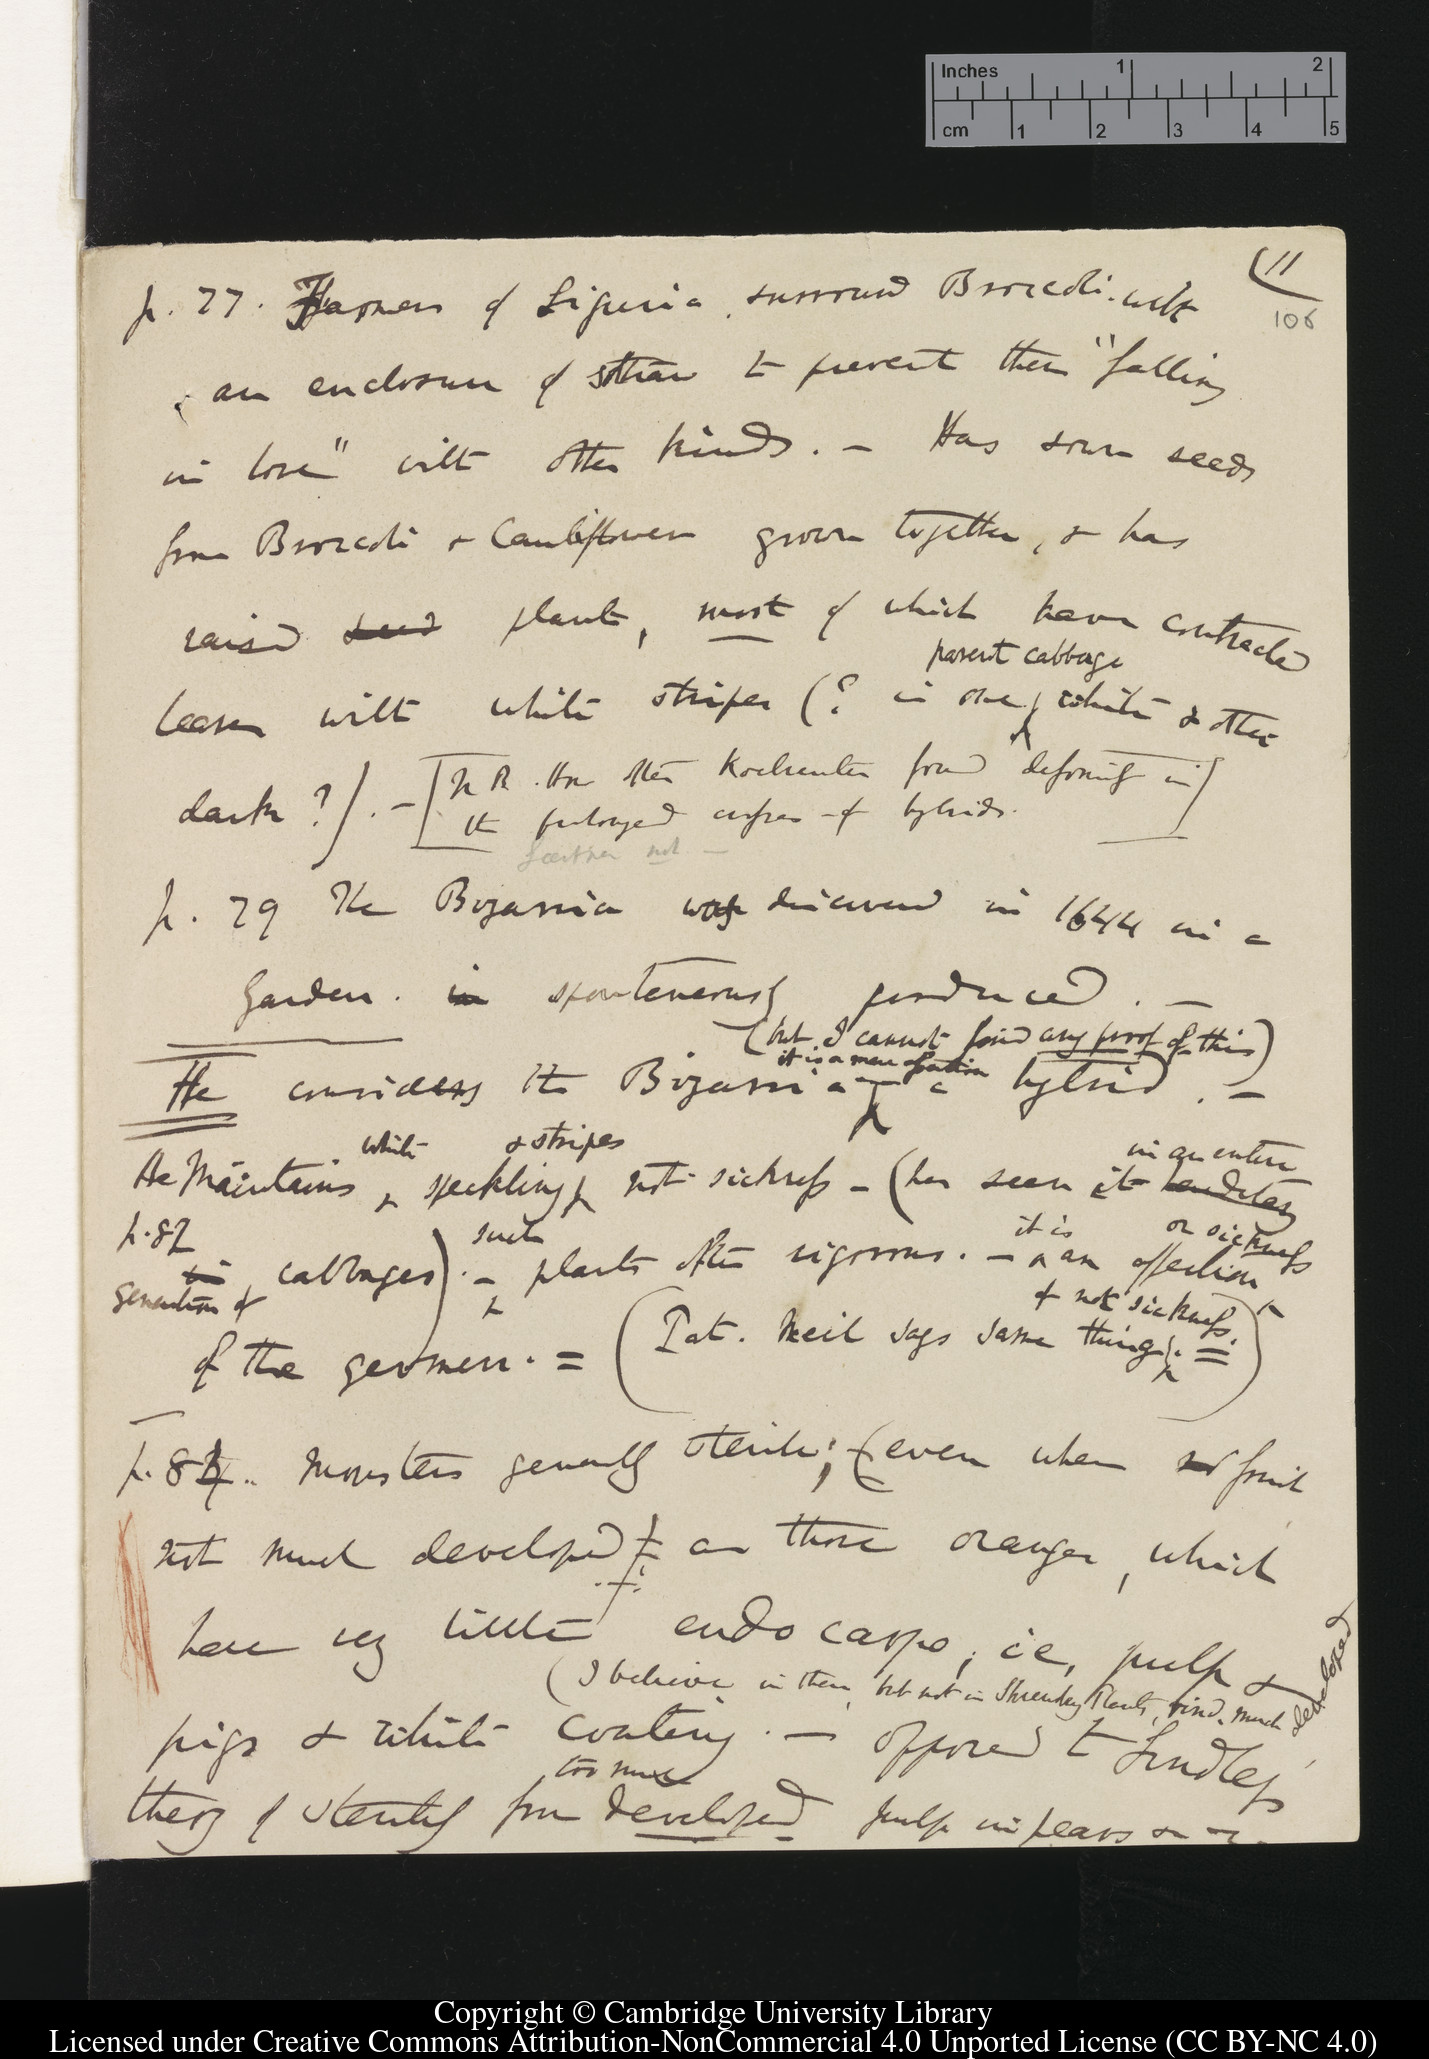 (11
106
p. 77. Farmers of Liguria, surround Broccoli with
an enclosure of straw to prevent them "falling
in love" with other kinds. — Has sown seeds
from Broccoli & Cauliflower grown together, & has
raised seed plants, most of which have contracted
parent cabbage
leaves with white stripes (? in one, white & other
dark?). — [N B. How often Koelreuter found deformity in
the prolonged of hybrids.]
Gærtner not —
p. 79 The Bizarria was discovered in 1644 in a
Garden. in spontaneously produced. —
(but I cannot find any proof of this)
it is a mere assertion
He considers the Bizarria a hybrid. —
white & stripes in an entire
He Maintains speckling, not sickness — (has seen it
p. 82 such it is or sickness
generation of in cabbages). — plants often vigorous. — an affection
& not sickness.
of the germen. = (Pat. Neil says same thing; =)
p. 84.. Monsters generally sterile; (even when fruit
not much developed) as those oranges, which
have very little endocarpe, ie, pulp &
(I believe in them, but not in Shrewley Plants, rind, much developed
pips & white coating. — opposed to Lindley's
too much
theory of sterility from developed pulp in pears &
Inches 1 2
cm 1 2 3 4 5
Copyright © Cambridge University Library
Licensed under Creative Commons Attribution-NonCommercial 4.0 Unported License (CC BY-NC 4.0)